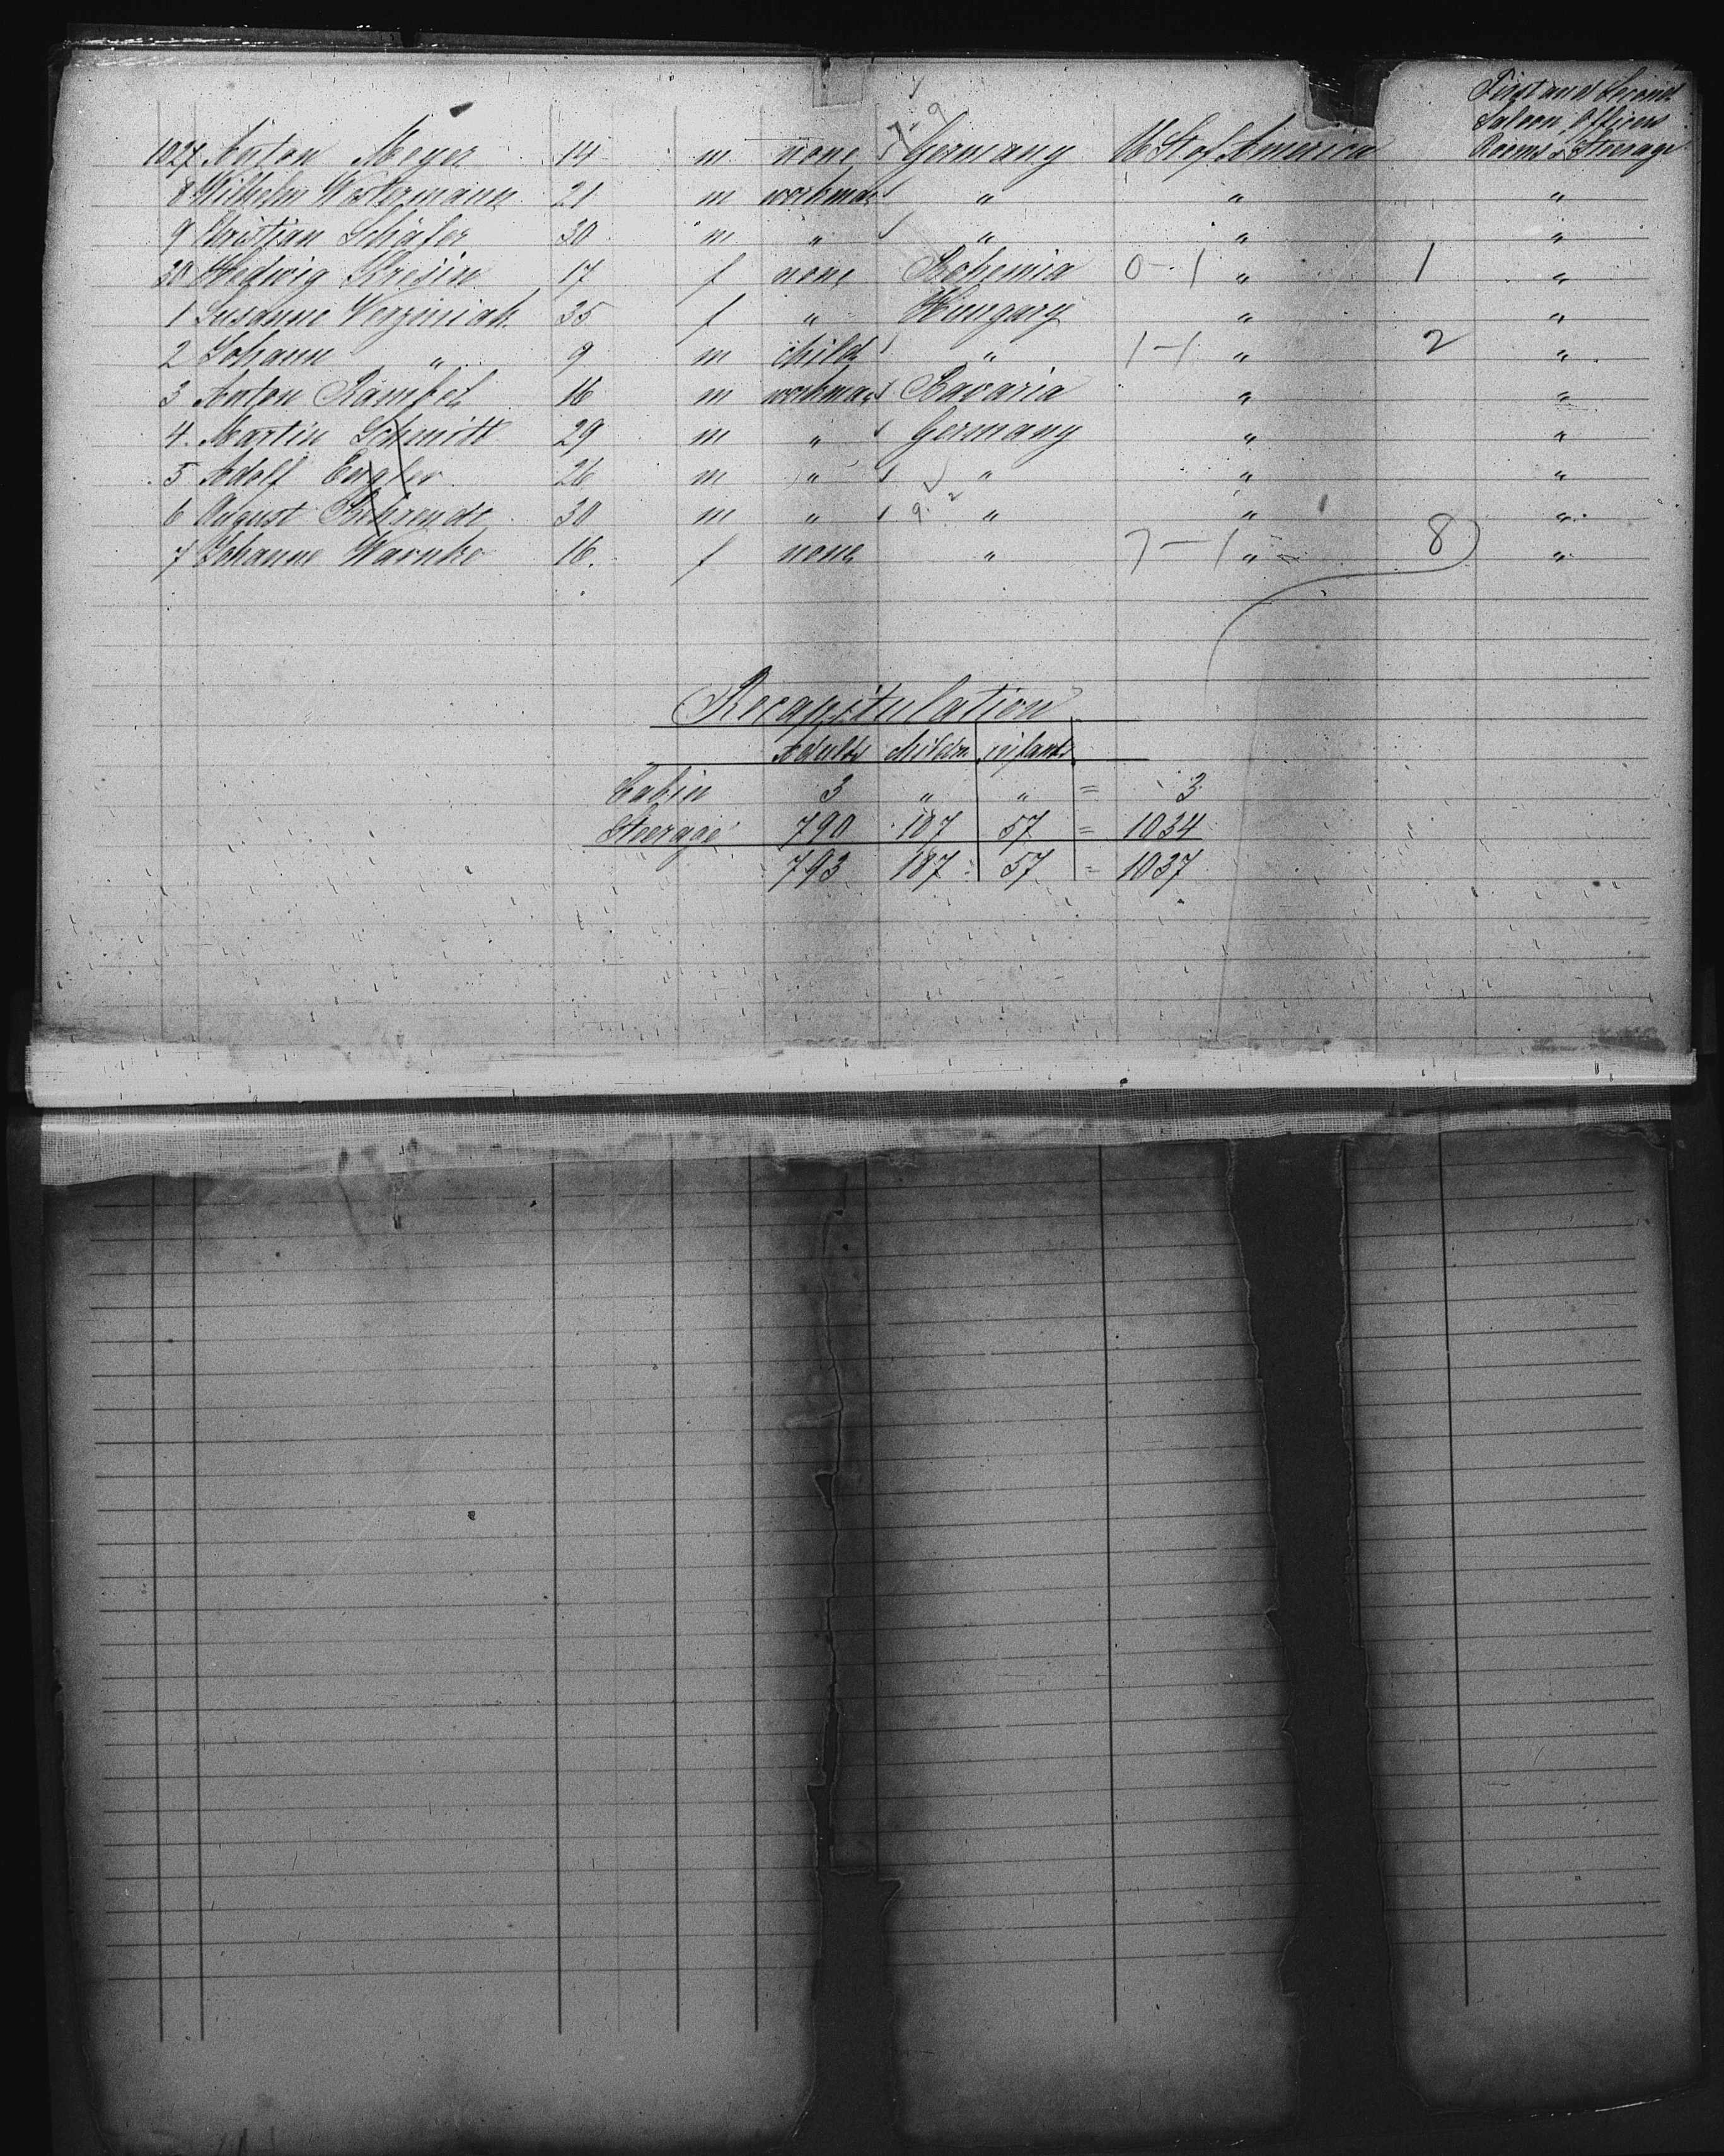 First and Second
Saloon, Officers
1027 Anton Meyer 14 m none Germany U St of America Rooms & Steerage
8 Wilhelm Westermann 21 m workman " " "
9 Christian Schäfer 30 m " " " "
30 Hedwig 17 f none Bohemia 0-1 " 1 "
1 Susanne 35 f " Hungary " "
2 Johann " 9 m child " 1-1 " 2 "
3 Anton 16 m workman Bavaria " "
4 Martin Schmitt 29 m " Germany " "
5 Adolf Engler 26 m " " " "
6 August Behrendt 30 m " " " "
7 Johanne Warnke 16 f none " 7-1 " 8 "
Recapitulation
Adults children infants
Cabin 3 " " = 3
Steerage 790 187 57 = 1034
793 187 57 = 1037